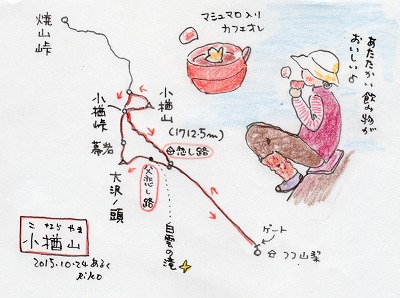 焼山峠
マシュマロ入り
カフェオレ
あたたかい飲み物が
おいしいよ
小楢山
(1712.5m)
小楢峠
幕岩
大沢ノ頭
母恋し路
父恋し路
白雲の滝
ゲート
フフ山梨
こならやま
小楢山
2015.10.24 あるく